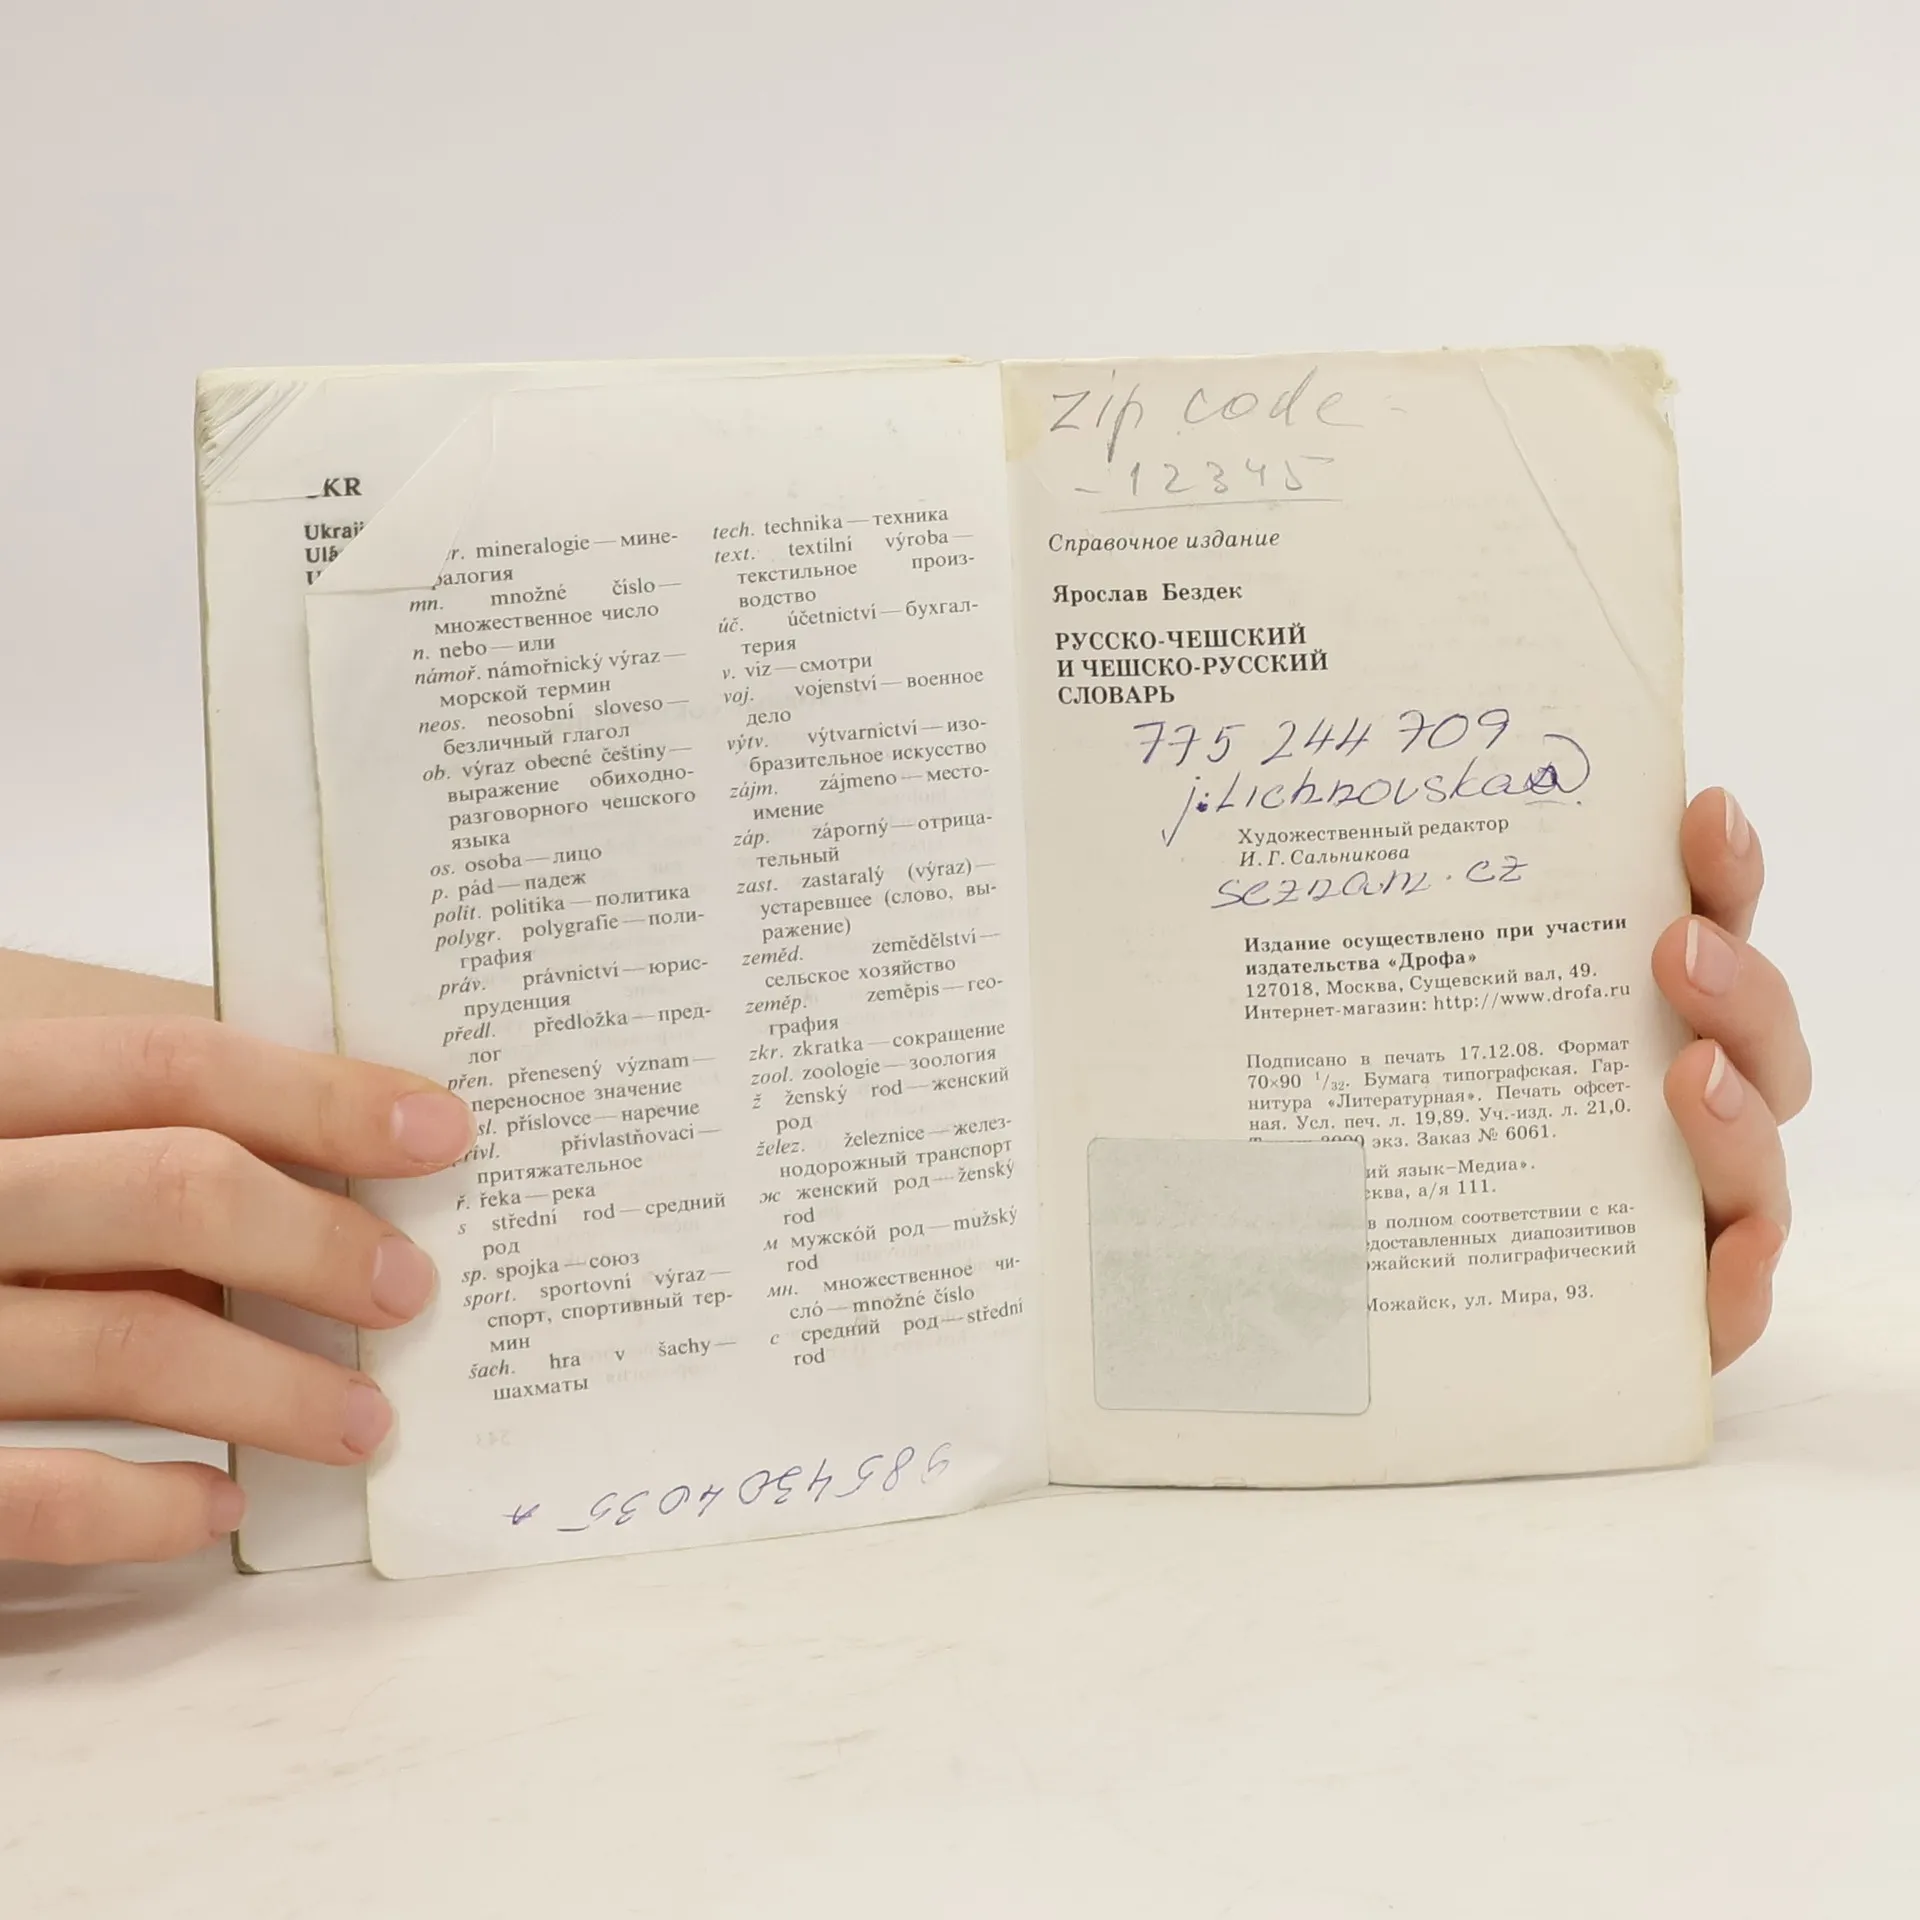 KR
mineralogie — мине-
ралогия
mn. množné číslo —
множественное число
n. nebo — или
námoř. námořnický výraz —
морской термин
neos. neosobní sloveso —
безличный глагол
ob. výraz obecné češtiny —
выражение обиходно-
разговорного чешского
языка
os. osoba — лицо
p. pád — падеж
polit. politika — политика
polygr. polygrafie — поли-
графия
práv. právnictví — юрис-
пруденция
předl. předložka — пред-
лог
přen. přenesený význam —
переносное значение
sl. příslovce — наречие
přivlastňovaci —
притяжательное
ř. řeka — река
s střední rod — средний
род
sp. spojka — союз
sport. sportovní výraz —
спорт, спортивный тер-
мин
šach. hra v šachy —
шахматы
tech. technika — техника
text. textilní výroba —
текстильное произ-
водство
úč. účetnictví — бухгал-
терия
v. viz — смотри
voj. vojenství — военное
дело
výtv. výtvarnictví — изо-
бразительное искусство
zájm. zájmeno — место-
имение
záp. záporný — отрица-
тельный
zast. zastaralý (výraz) —
устаревшее (слово, вы-
ражение)
zeměd. zemědělství —
сельское хозяйство
zeměp. zeměpis — гео-
графия
zkr. zkratka — сокращение
zool. zoologie — зоология
ž ženský rod — женский
род
želez. železnice — желез-
нодорожный транспорт
ж женский род — ženský
rod
м мужской род — mužský
rod
мн. множественное чи-
сло — množné číslo
с средний род — střední
rod
zip code -
- 12345
Справочное издание
Ярослав Бездек
РУССКО-ЧЕШСКИЙ
И ЧЕШСКО-РУССКИЙ
СЛОВАРЬ
775 244 709
j.Lichnovska@
Художественный редактор
И. Г. Сальникова
seznam.cz
Издание осуществлено при участии
издательства «Дрофа»
127018, Москва, Сущевский вал, 49.
Интернет-магазин: http://www.drofa.ru
Подписано в печать 17.12.08. Формат
70×90 1/32. Бумага типографская. Гар-
нитура «Литературная». Печать офсет-
ная. Усл. печ. л. 19,89. Уч.-изд. л. 21,0.
экз. Заказ № 6061.
язык–Медиа».
а/я 111.
в полном соответствии с ка-
диапозитивов
полиграфический
Можайск, ул. Мира, 93.